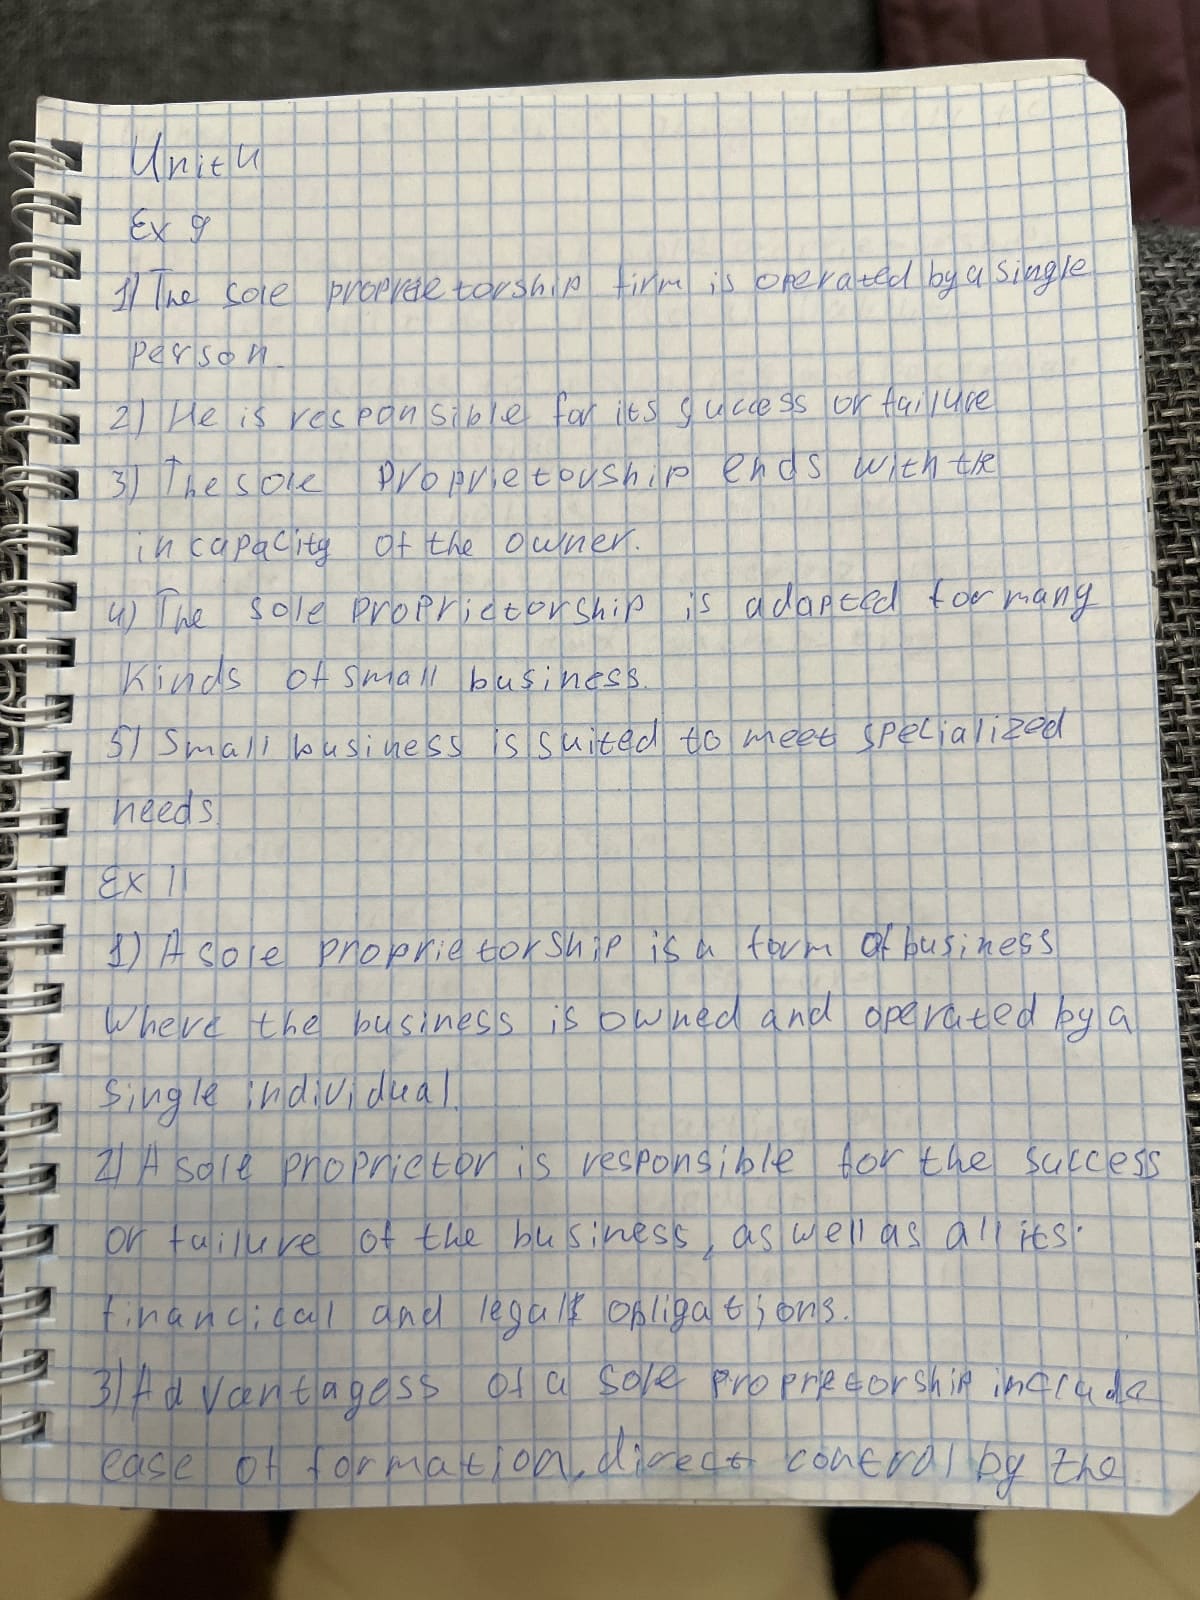 Unit 4
Ex 9
1) The sole proprietorship firm is operated by a single
person.
2) He is responsible for its success or failure
3) The sole proprietorship ends with the
incapacity of the owner.
4) The sole proprietorship is adapted for many
kinds of small business.
5) Small business is suited to meet specialized
needs
Ex 11
1) A sole proprietorship is a form of business
Where the business is owned and operated by a
single individual.
2) A sole proprietor is responsible for the success
or failure of the business, as well as all its
financical and legal obligations.
3) Advantagess of a sole proprietorship include
ease of formation, direct control by the